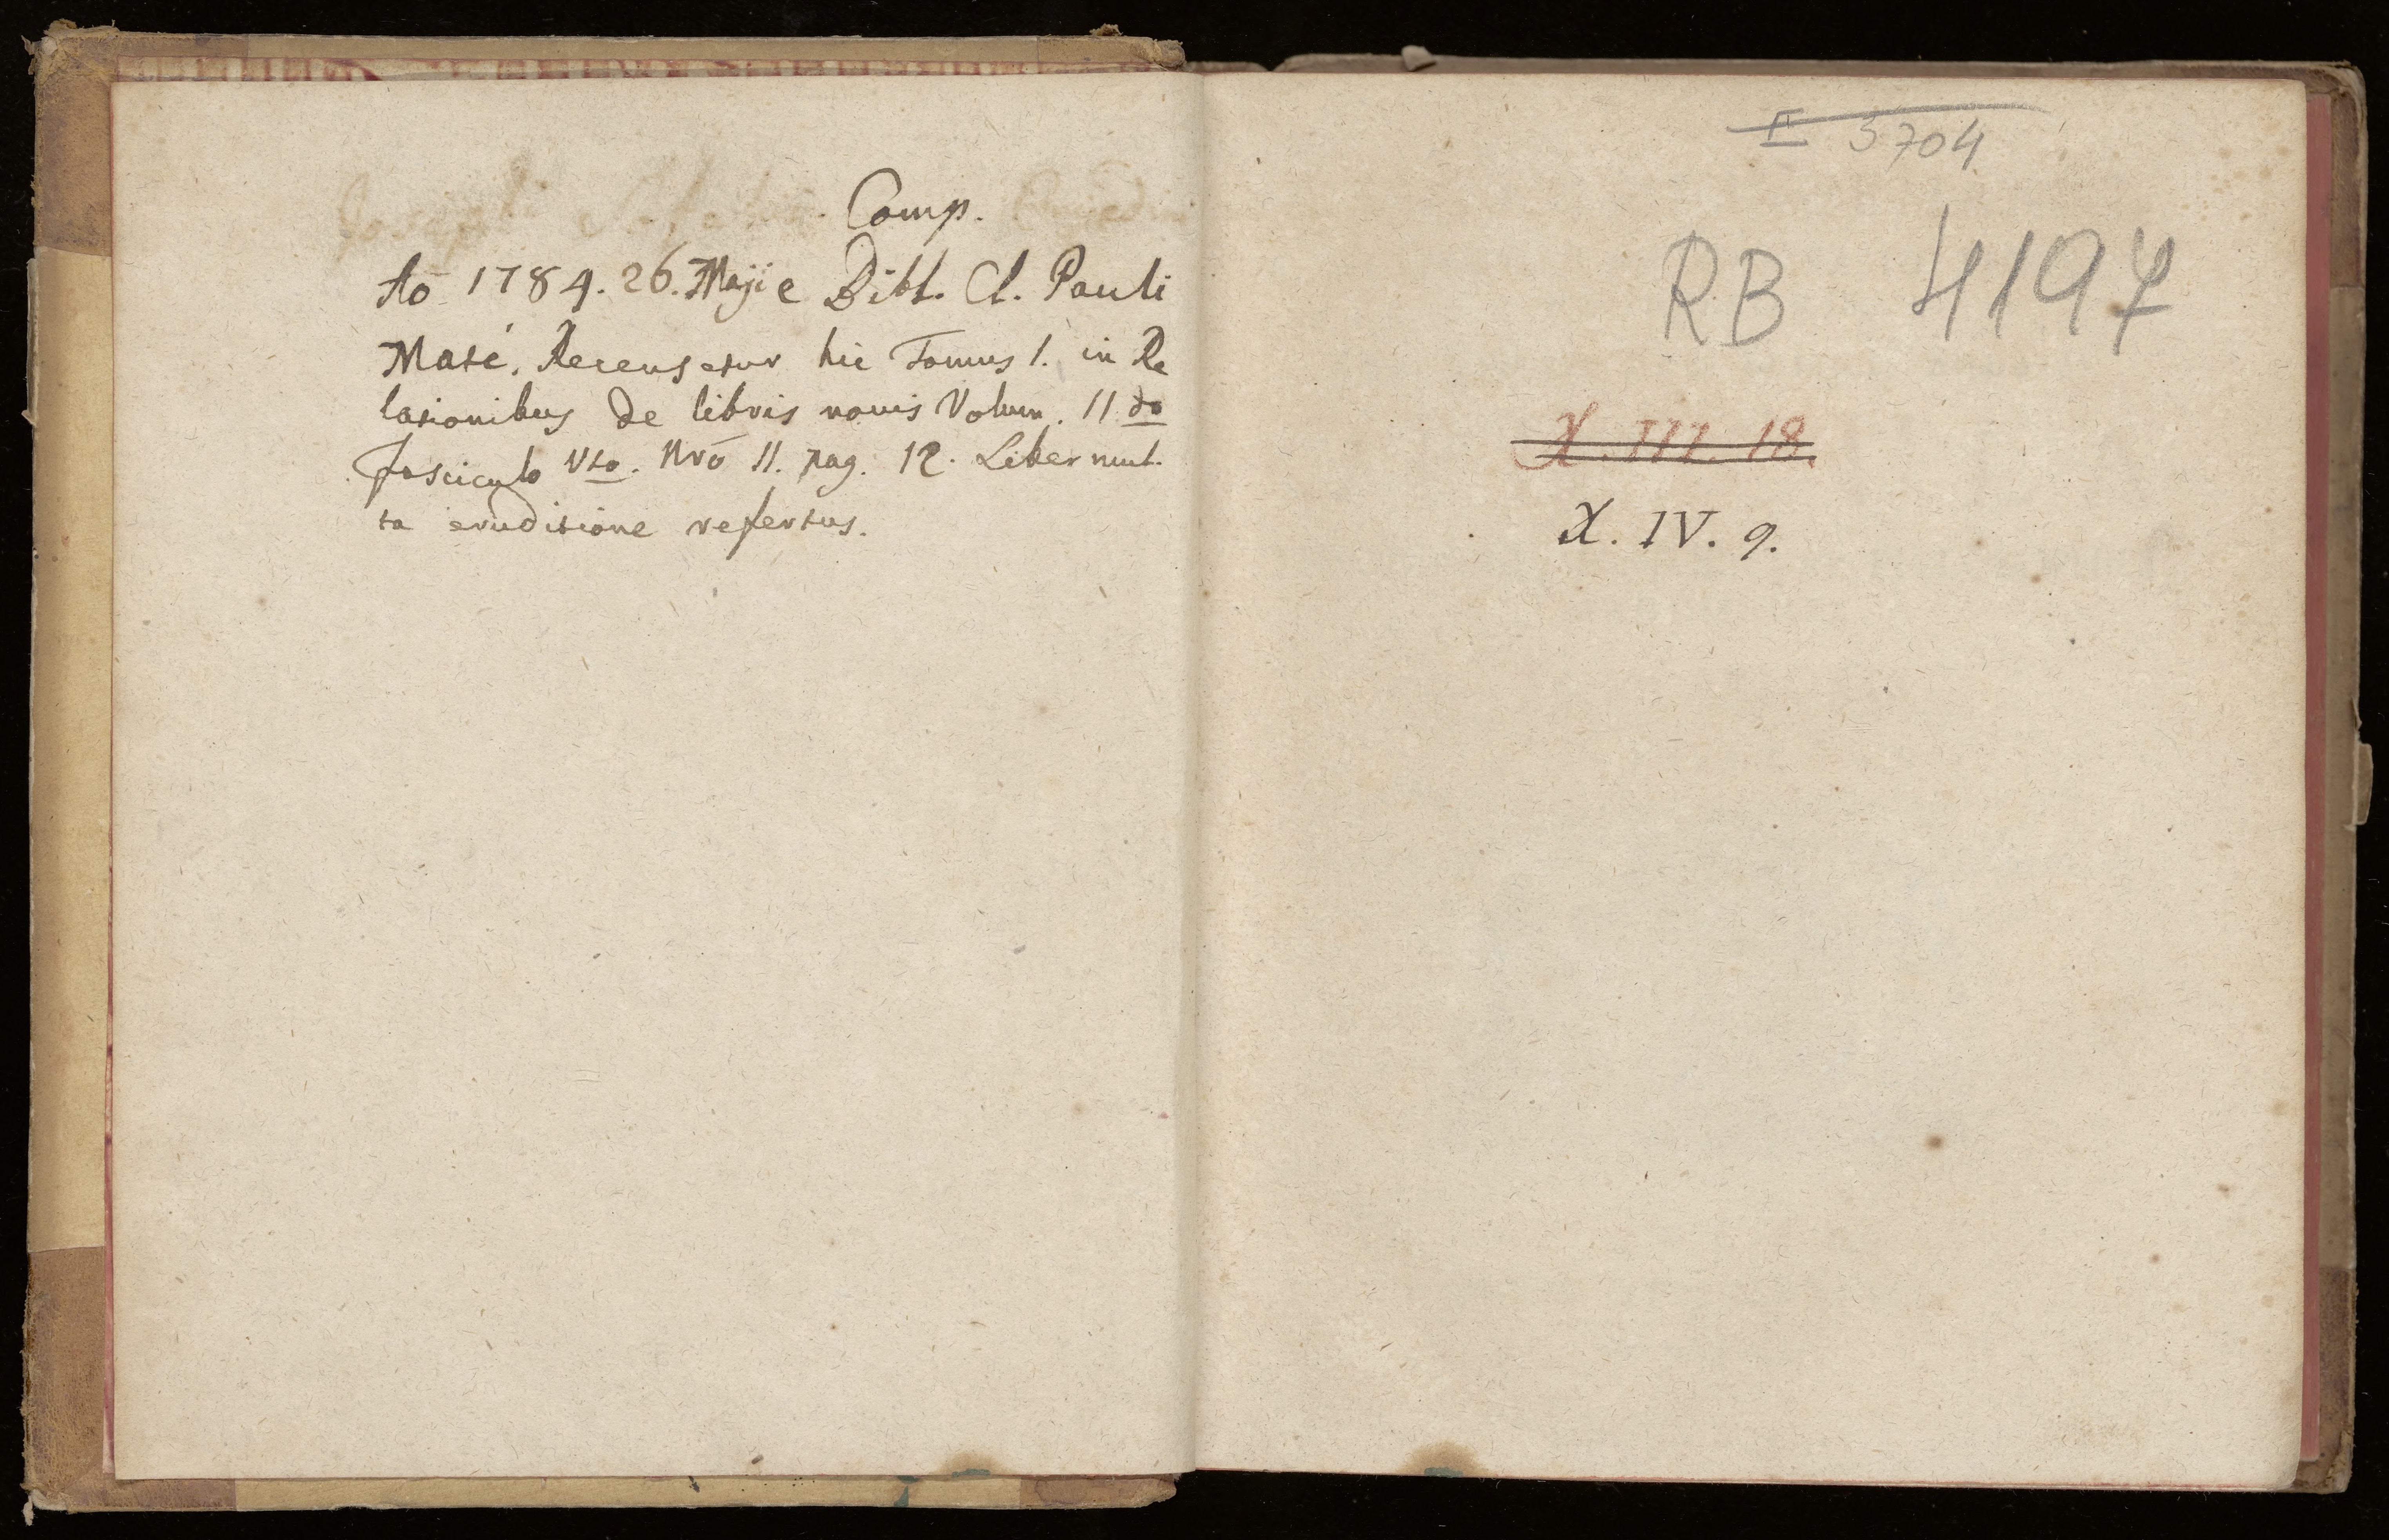 Comp.
Aō 1784. 26. Maji e Bibl. Cl. Pauli
Maté. Recensetur hic Tomus 1. in Re
lationibus de libris novis Volum. 11do
fasciculo Vto. Nrō 11. pag. 12. Liber mul-
ta eruditione refertus.
II 3704
RB 4197
X. III. 18.
X. IV. 9.